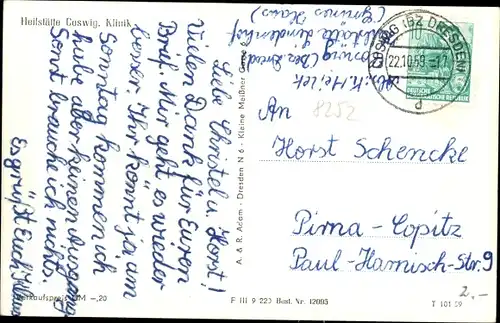 Heilstätte Coswig, Klinik
Liebe Christel u. Horst!
Vielen Dank für Euren
Brief. Mir geht es wieder
besser. Ihr könnt ja am
Sonntag kommen ich
habe aber keinen Ausgang
Sonst brauche ich nichts.
Es grüßt Euch
Verkaufspreis DM -,20
A. & R. Adam - Dresden N 6 - Kleine Meißner Gasse
F III 9 220 Best. Nr. 12005
T 101 59
Coswig (Bz Dresden)
(Grünes Haus)
COSWIG (BZ DRESDEN)
22.10.59.-17
d
10
DEUTSCHE
DEMOKRATISCHE REPUBLIK
8252
An
Horst Schencke
Pirna-Copitz
Paul-Harnisch-Str. 9
2.-